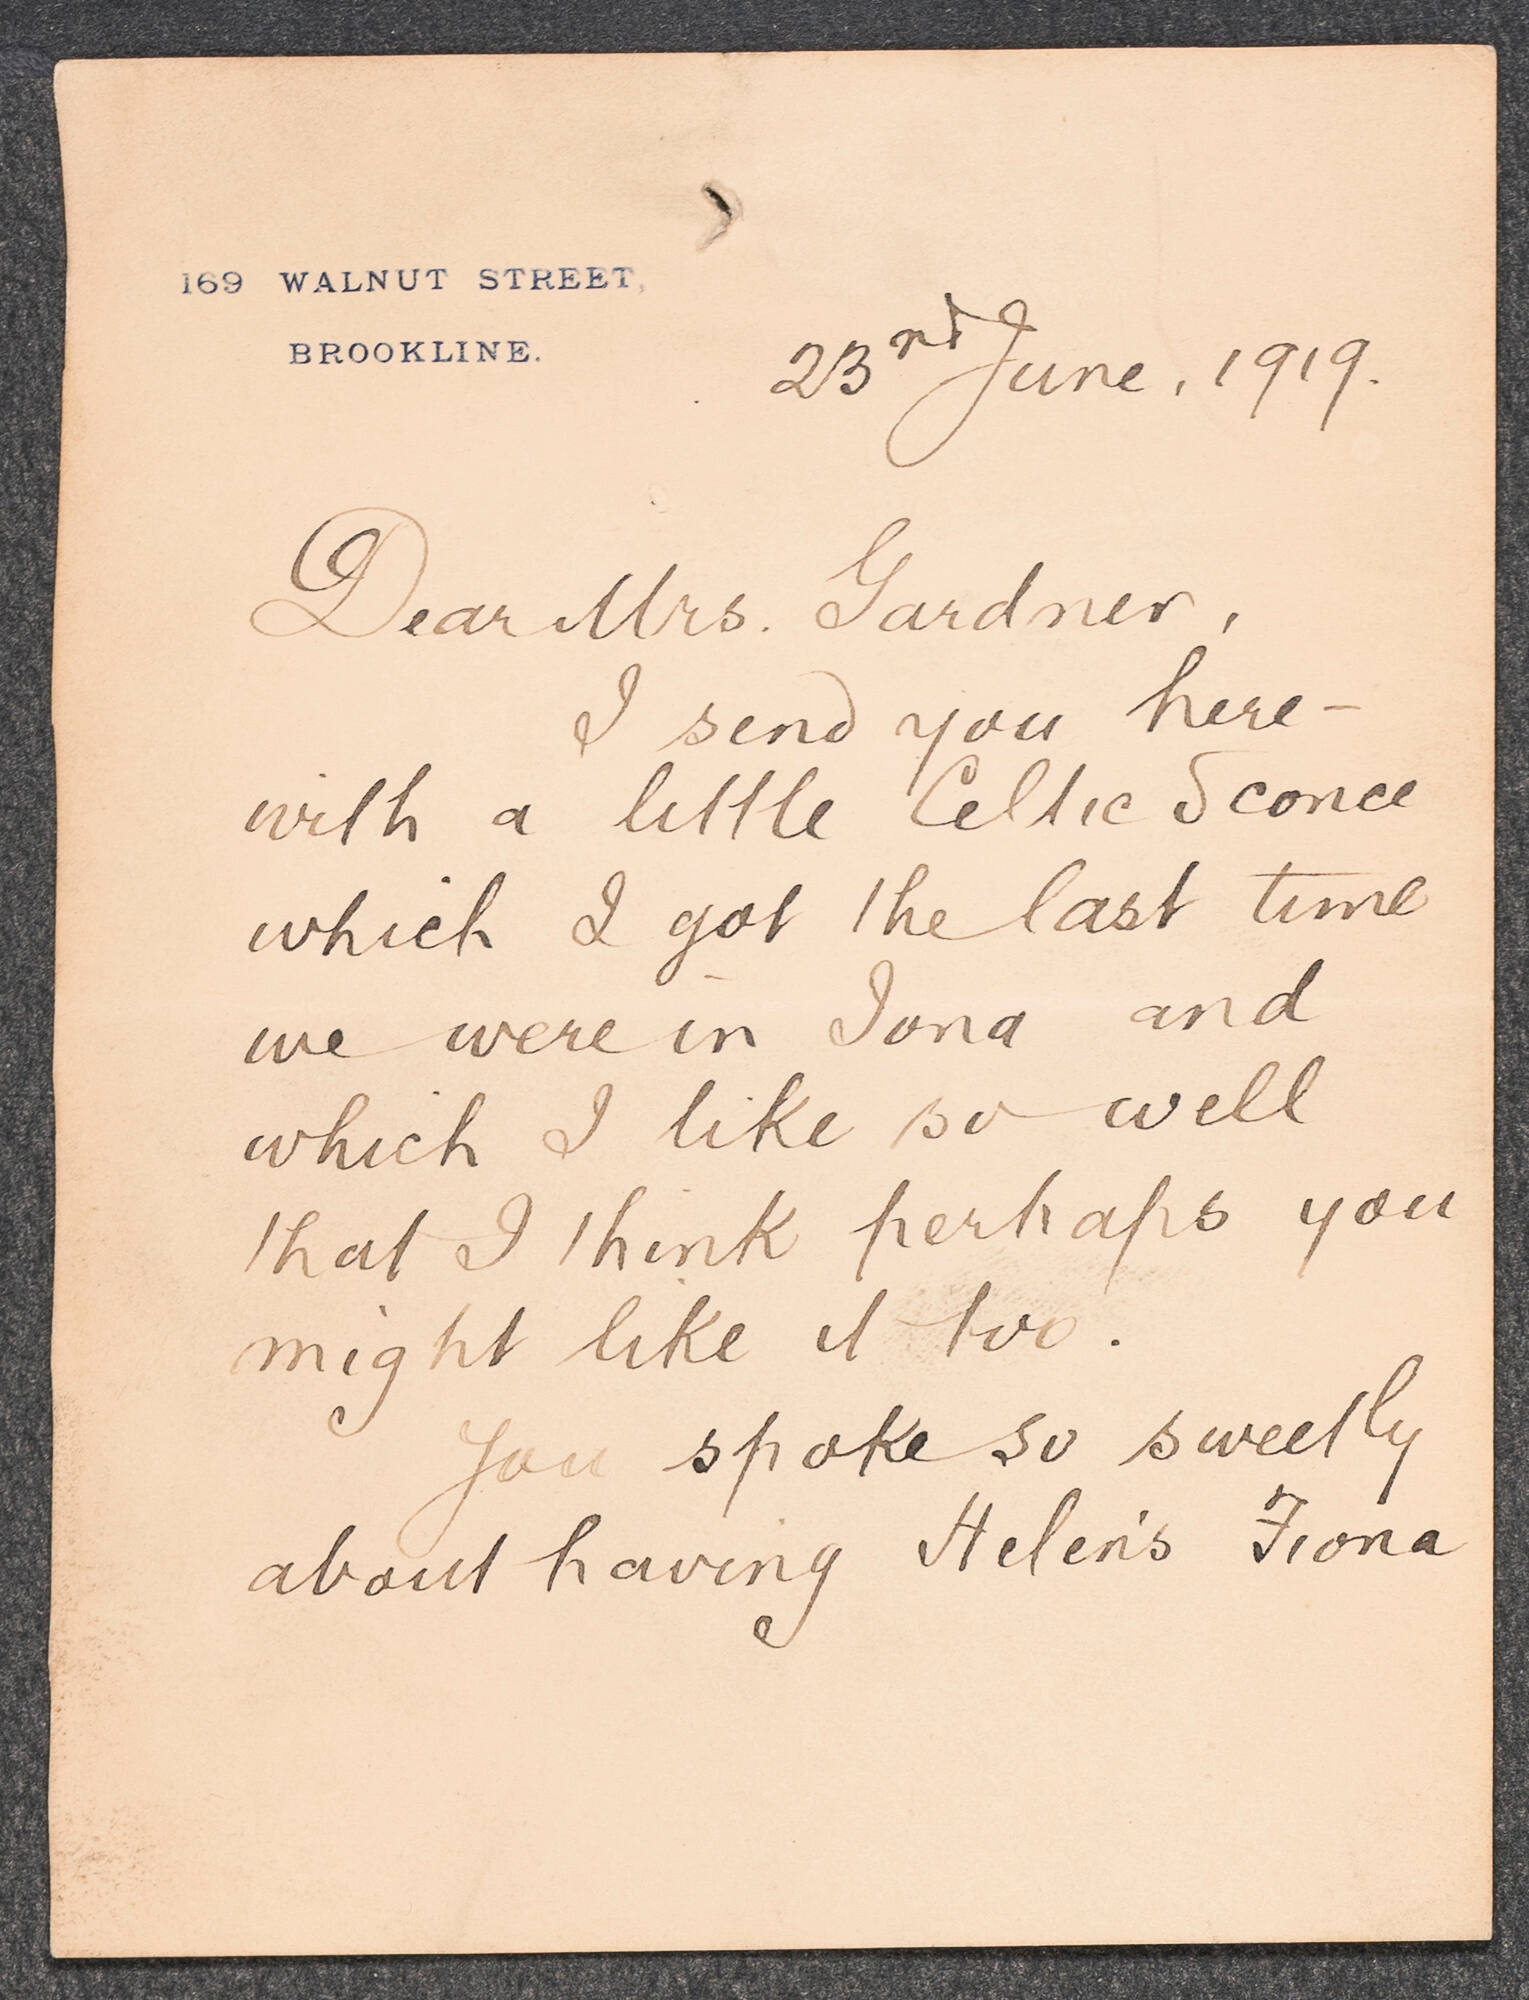 169 WALNUT STREET,
BROOKLINE.
23rd June, 1919.
Dear Mrs. Gardner,
I send you here-
with a little Celtic Sconce
which I got the last time
we were in Iona and
which I like so well
that I think perhaps you
might like it too.
You spoke so sweetly
about having Helen's Fiona